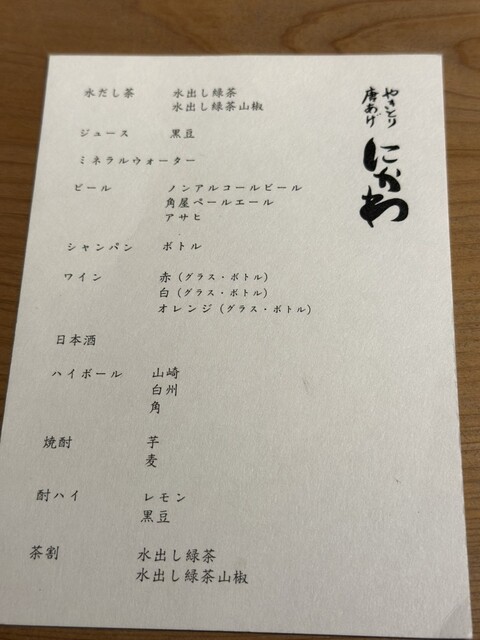 やきとり
唐あげ
にかわ
水だし茶 水出し緑茶
水出し緑茶山椒
ジュース 黒豆
ミネラルウォーター
ビール ノンアルコールビール
角屋ペールエール
アサヒ
シャンパン ボトル
ワイン 赤(グラス・ボトル)
白(グラス・ボトル)
オレンジ(グラス・ボトル)
日本酒
ハイボール 山崎
白州
角
焼酎 芋
麦
酎ハイ レモン
黒豆
茶割 水出し緑茶
水出し緑茶山椒